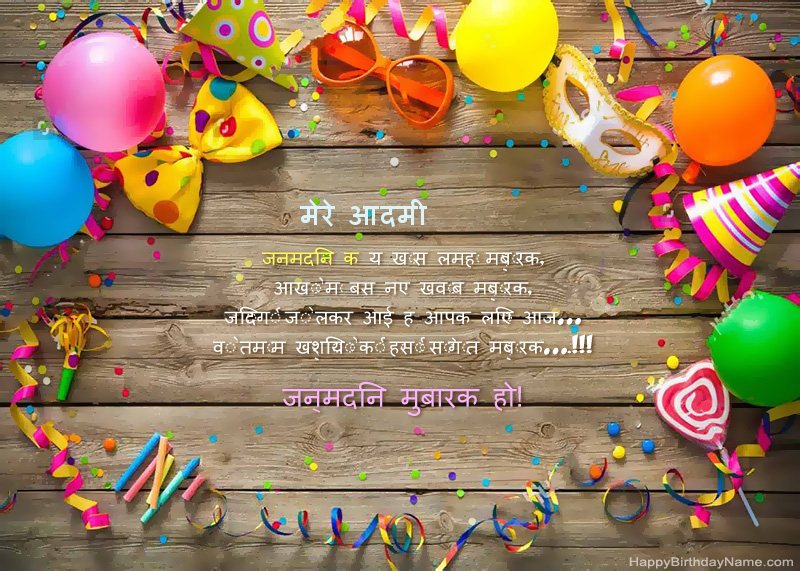 मेरे आदमी
जनमदनि क य खास लमह मबारक,
आखों म बस नए खवाब मबारक,
जदिगी जो लेकर आई ह आपक लएि आज...
वो तमाम खशयों की हसी सौगात मबारक...!!!
जन्मदनि मुबारक हो!
HappyBirthdayName.com